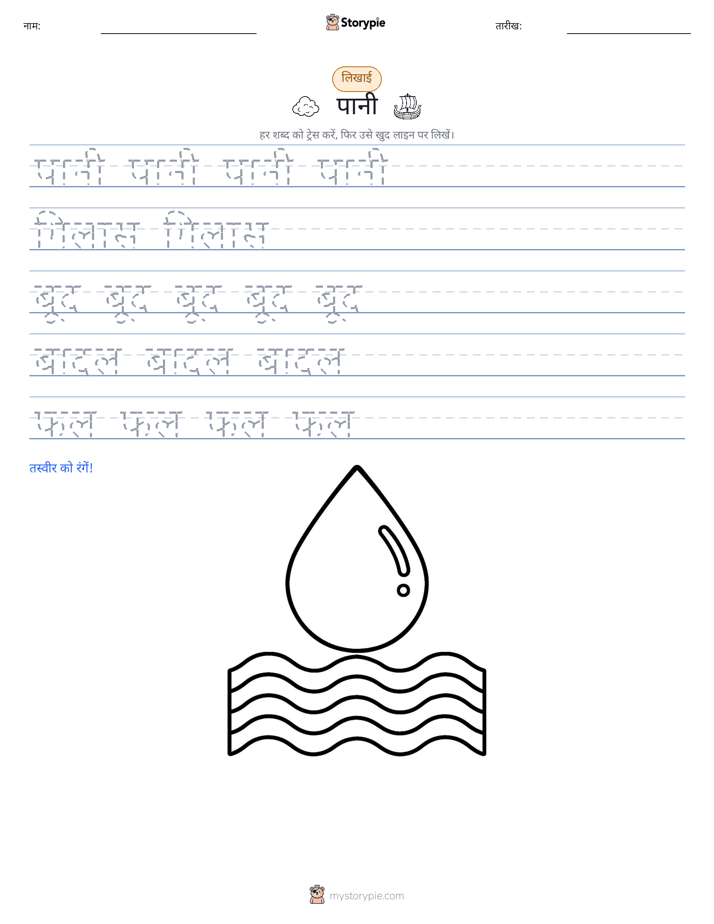 नाम: Storypie तारीख:
लिखाई
पानी
हर शब्द को ट्रेस करें, फिर उसे खुद लाइन पर लिखें।
पानी पानी पानी पानी
गिलास गिलास
बूंद बूंद बूंद बूंद बूंद
बादल बादल बादल
फल फल फल फल
तस्वीर को रंगें!
mystorypie.com